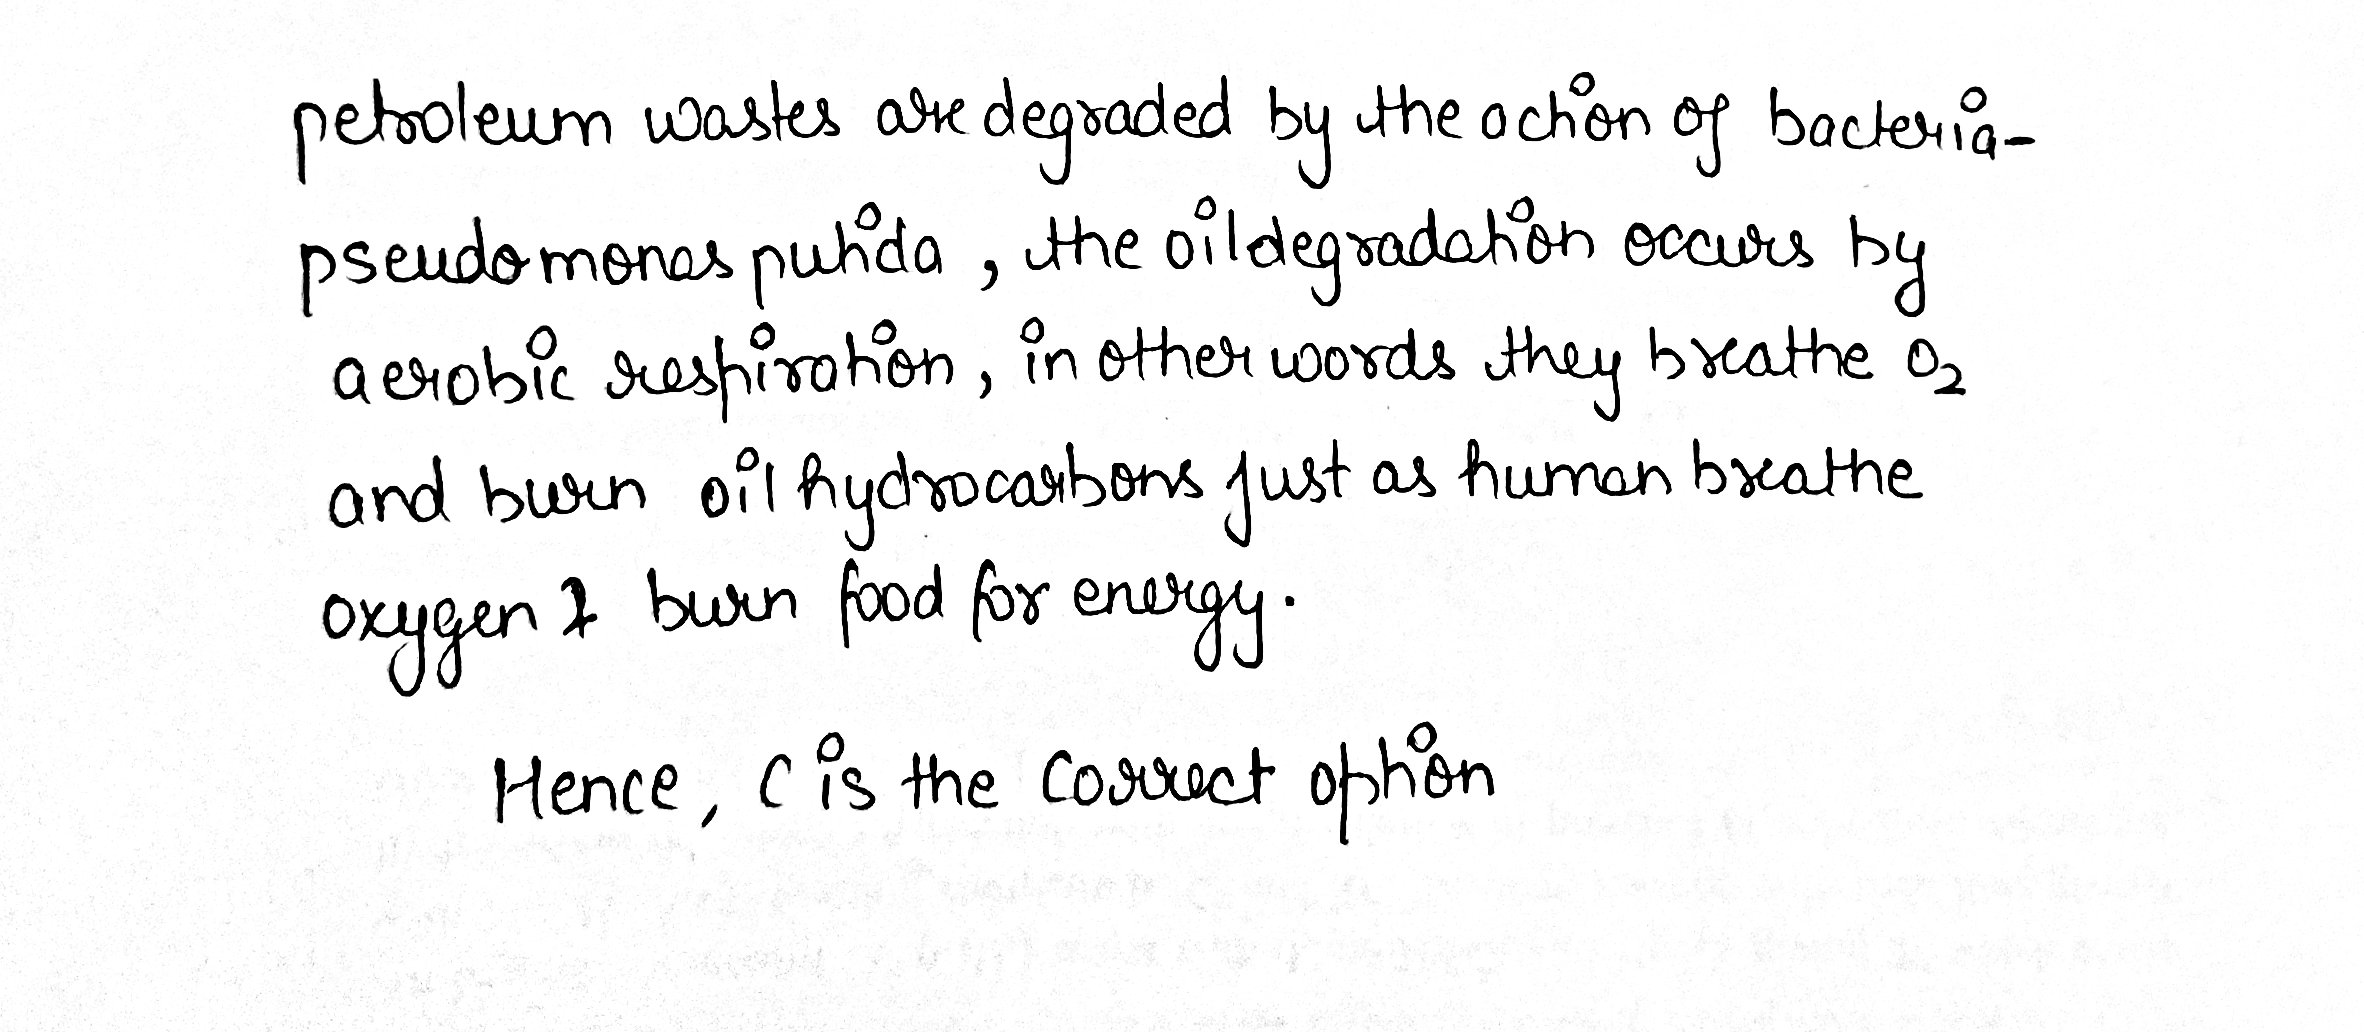 petroleum wastes are degraded by the action of bacteria-
pseudomonas putida, the oil degradation occurs by
aerobic respiration, in other words they breathe O₂
and burn oil hydrocarbons just as human breathe
oxygen & burn food for energy.
Hence, C is the correct option